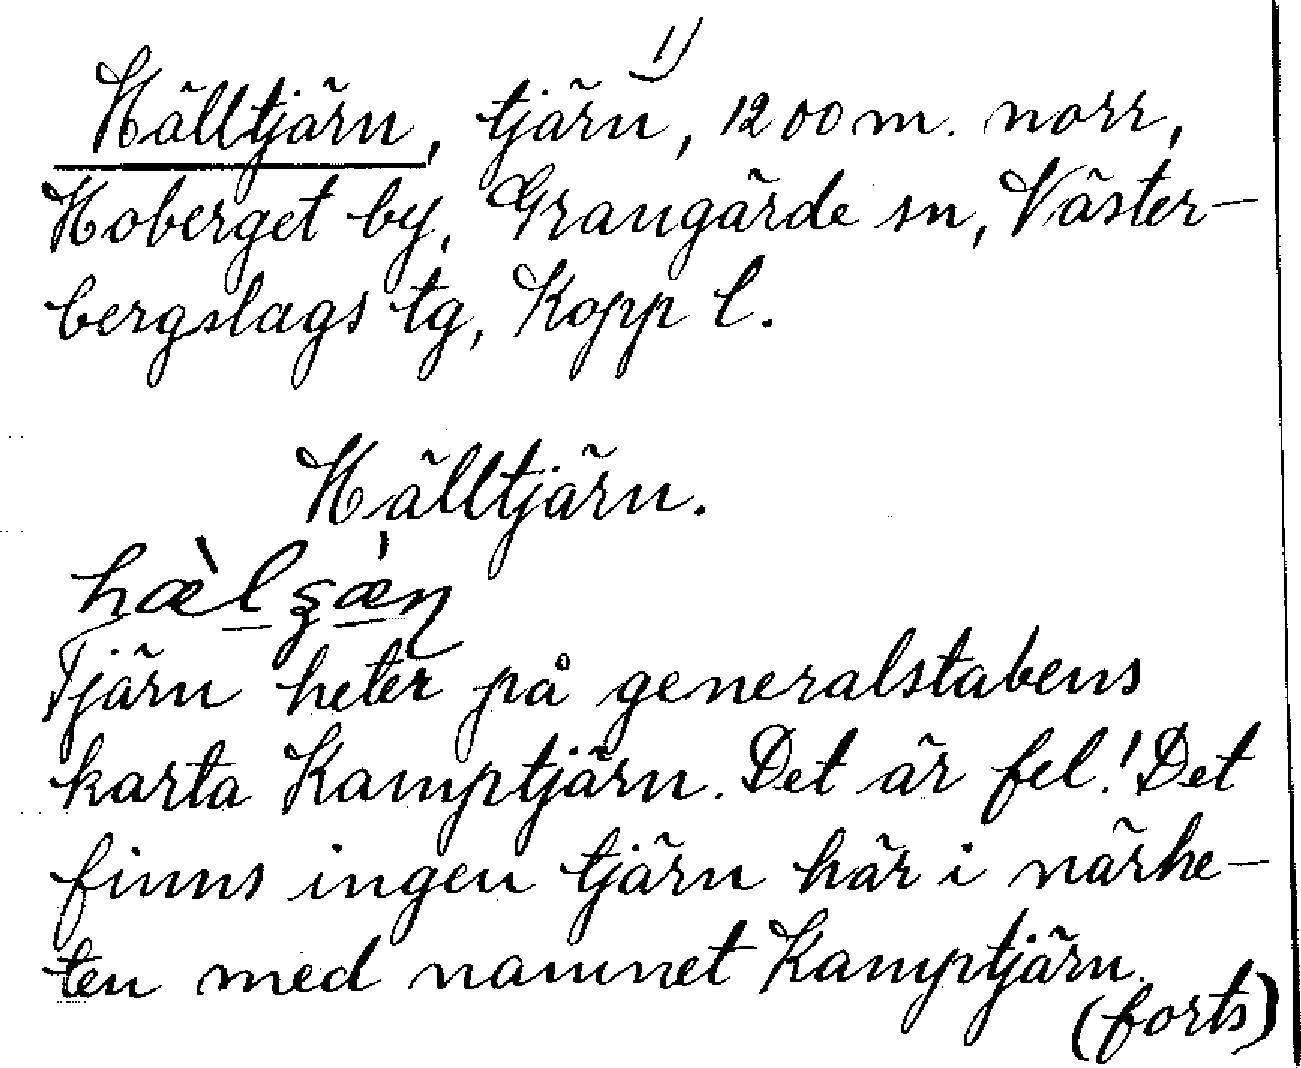 1)
Hälltjärn, tjärn, 1200 m. norr,
Hoberget by, Grangärde sn, Väster-
bergslags tg, Kopp l.
Hälltjärn.
Tjärn heter på generalstabens
karta Kamptjärn. Det är fel! Det
finns ingen tjärn här i närhe-
ten med namnet Kamptjärn.
(forts)